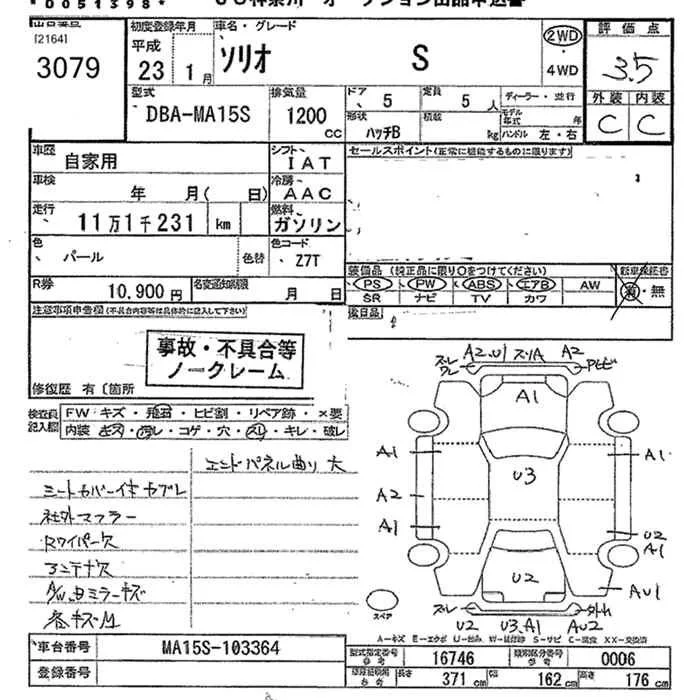 * 0 0 5 1 3 9 8 *
[2164]
3079
初度登録年月
平成
23 1月
車名・グレード
ソリオ S
2WD
・4WD
評価点
3.5
外装 内装
C C
型式
DBA-MA15S
排気量
1200
cc
ドア 5
定員 5 人
ディーラー・並行
形状 ハッチB
積載 kg
モデル年式 年
ハンドル 左・右
車歴 自家用
シフト IAT
セールスポイント(正常に機能するものに限ります)
車検 年 月( 日)
冷房 AAC
走行 11万1千231 km
燃料 ガソリン
色 パール 色替
色コード Z7T
装備品 (純正品に限り〇をつけてください)
新車保証書
PS PW ABS エアB AW
SR ナビ TV カワ
有・無
R券 10,900円
名変通知期限 月 日
後日品
注意事項申告欄(不具合内容等は具体的に記入して下さい)
事故・不具合等
ノークレーム
修復歴 有〔箇所
検査員記入欄
FW キズ・飛石・ヒビ割・リペア跡・×要
内装 キズ・汚レ・コゲ・穴・スレ・キレ・破レ
エンドパネル曲り 大
シートカバー付 ヤブレ
社外マフラー
Rワイパー欠
アンテナ欠
各キズU
A2.U1 スリA A2
A1
A1 U3 A1
A2
A1 U2
A1
U2 AU1
スペア
U2 U3.A1 AU2
A-キズ E-エクボ U-凹み W-補修跡 S-サビ C-腐食 XX-交換済
車台番号 MA15S-103364
登録番号
型式指定番号 参考 16746
類別区分番号 参考 0006
長さ 371 cm
幅 162 cm
高さ 176 cm